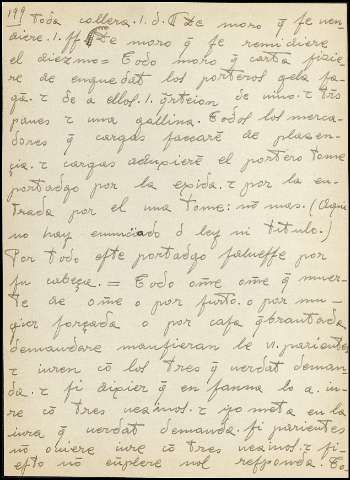 199
toda collera. I. d. ℂ De moro q̃ se uen-
diere. I. ff ℂ De moro q̃ se remidiere
el diezmo = Todo moro q̃ carta fizie
re de enguedat los porteros gela fa-
gã. τ de a ellos. I. q̃rteion de uino. τ tres
panes τ una gallina. Todos los merca-
dores q̃ cargas sacarẽ de plasen-
çia. τ cargas aduxierẽ el portero tome
portadgo por la exida. τ por la en-
trada por el una tome: nõ mas. (Aqui
no hay enunciado d ley ni titulo.)
Por todo este portadgo salua sse por
su cabeça. = Todo om̃e om̃e q̃ muer-
te de om̃e o por furto. o por mu-
gier forçada o por casa q̃brantada
demandare manfieran le V. parientes
τ iuren cõ los tres q̃ uerdat deman
da. τ si dixier q̃ en sanna lo a. iu-
re cõ tres uezinos. τ yo meta en la
iura q̃ uerdat demanda. si parientes
nõ ouiere iure cõ tres uezinos. τ si
esto nõ cũplere nol responda. To-